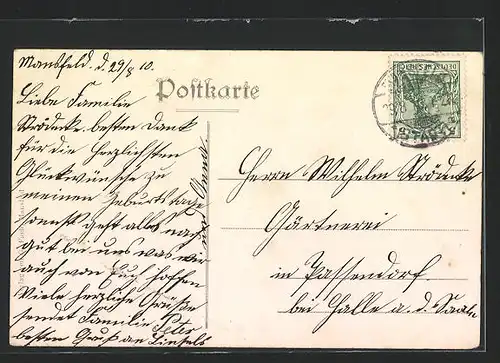 Mansfeld. d. 29/8 10.
Postkarte
Liebe Familie
Strödecke. besten Dank
für die herzlichsten
Glückwünsche zu
meinen Geburtstage
sonst geht alles noch
gut bei uns was wir
auch von Euch hoffen
Viele herzliche Grüße
sendet Familie Peter
besten Gruß an
DEUTSCHES REICH
Herrn Wilhelm Strödecke
Gärtnerei
in Passendorf.
bei Halle a. d. Saale